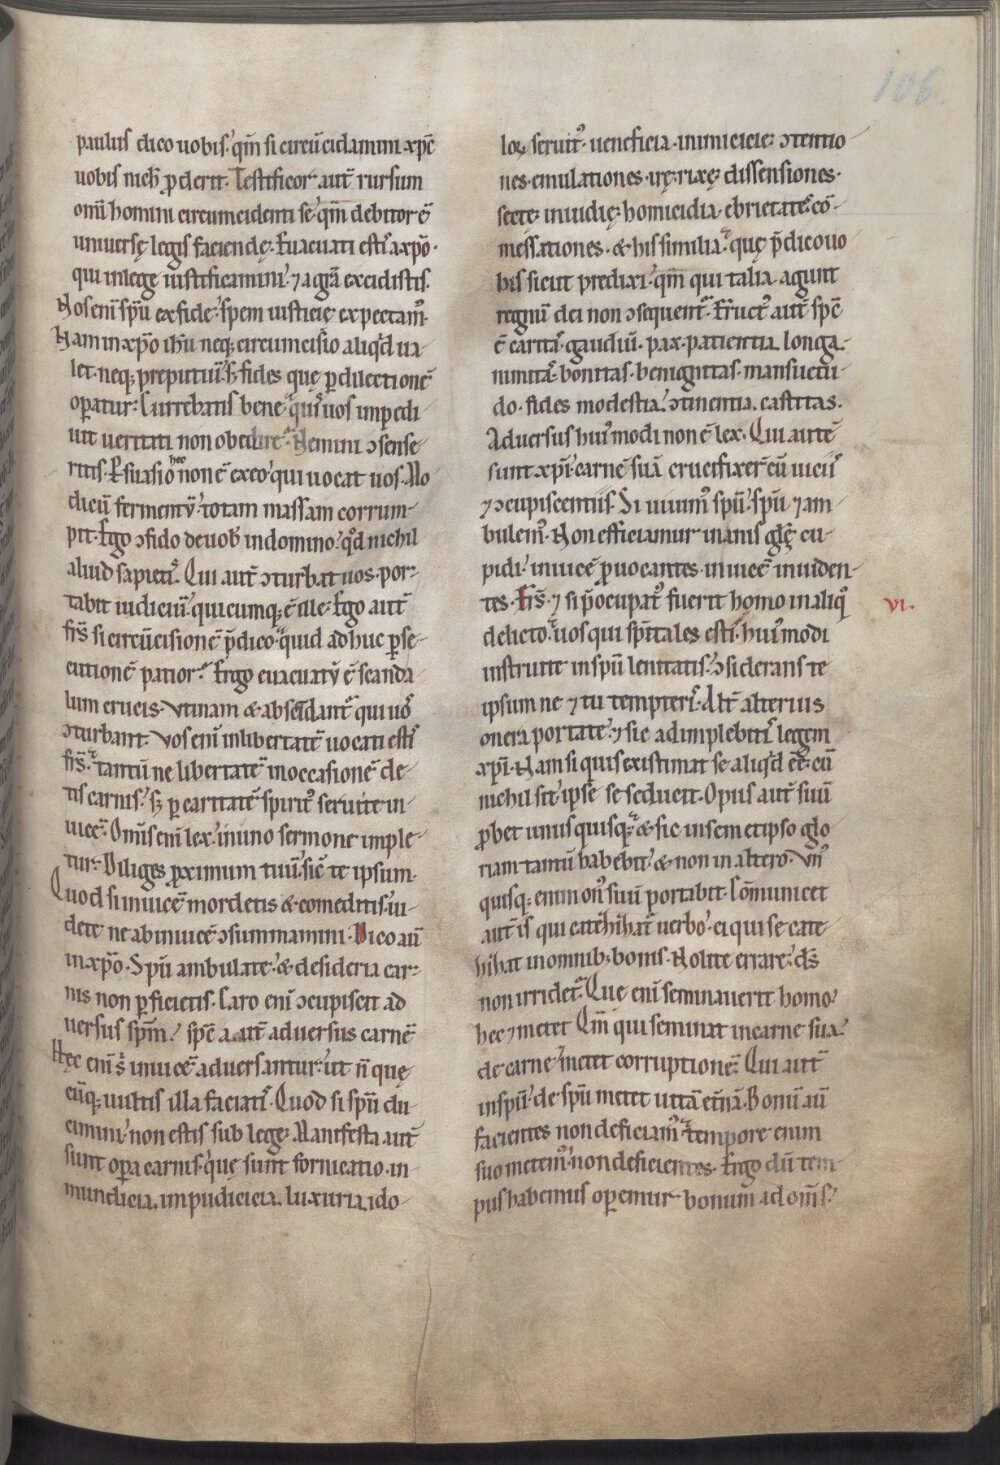 106.
paulus dico uobis. qm̅ si circu̅cidamini xp̅c
uobis nich̅ ꝓderit. Testificor aut̅ rursum
om̅i homini circumcidenti se. qm̅ debitor e̅
uniuersę legis faciendę. Euacuati estis a xp̅o.
qui in lege iustificamini. ⁊ a gr̅a excidistis.
Nos eni̅ sp̅u ex fide. spem iusticię expectam᷒.
Nam in xp̅o ih̅u neq; circumcisio aliqd̅ ua-
let. neq; preputiu̅. sꝫ fides quę ꝑ dilectione̅
oꝑatur. Currebatis bene. quis uos impedi-
uit ueritati non obedire. Nemini ↄsense-
ritis. ꝑsuasio hec non e̅ ex eo. qui uocat uos. Mo
dicu̅ fermentu̅. totam massam corrum-
pit. Ego ↄfido de uob̅ in domino. qd̅ nichil
aliud sapietis. Qui aut̅ ↄturbat uos. por-
tabit iudiciu̅. quicumq; e̅ ille. Ego aut̅
fr̅s si circu̅cisione̅ p̅dico. quid adhuc ꝑse-
cutione̅ patior. Ergo euacuatu̅ e̅ scanda
lum crucis. Vtinam & abscidant᷒ qui uos
ↄturbant. Vos eni̅ in libertate̅ uocati estis
fr̅s. tantu̅ ne libertate̅ in occasione̅ de-
tis carnis. sꝫ ꝑ caritate̅ spirit᷒ seruite in-
uice̅. Om̅is eni̅ lex. in uno sermone imple-
tur. Diliges ꝓximum tuu̅. sic̅ te ipsum.
Quod si inuice̅ mordetis & comeditis. ui-
dete ne ab inuice̅ ↄsummamini. Dico au̅
in xp̅o. Sp̅u ambulate. & desideria car-
nis non ꝑficietis. Caro eni̅ ↄcupiscit ad
uersus sp̅m. sp̅c aut̅ aduersus carne̅.
Hęc eni̅ s̅ inuice̅ aduersantur. ut n̅ quę
cu̅q; uultis illa faciatis. Quod si sp̅u du-
cimini. non estis sub lege. Manifesta aut̅
sunt oꝑa carnis. quę sunt fornicatio. in-
mundicia. impudicicia. luxuria. ido-
loꝝ seruit᷒. ueneficia. inimicicię. ↄtentio
nes. emulationes. irę. rixę. dissensiones.
sectę. inuidię. homicidia. ebrietates. co̅-
messationes. & his similia. quę p̅dico uo
bis sicut predixi. qm̅ qui talia agunt
regnu̅ dei non ↄsequent᷒. Fruct᷒ aut̅ sp̅c
e̅ caritas. gaudiu̅. pax. patientia. longa-
nimitas. bonitas. benignitas. mansuetu-
do. fides. modestia. ↄtinentia. castitas.
Aduersus hui᷒modi non e̅ lex. Qui aute̅
sunt xp̅i. carne̅ sua̅ crucifixer̅ cu̅ uiciis
⁊ ↄcupiscentiis. Si uiuim᷒ sp̅u. sp̅u ⁊ am-
bulem᷒. Non efficiamur inanis glę̅ cu-
pidi. inuice̅ ꝓuocantes. inuice̅ inuiden-
tes. Fr̅s. ⁊ si p̅ocupat᷒ fuerit homo in aliq̊
delicto. uos qui sp̅itales estis. hui᷒modi
instruite in sp̅u lenitatis. ↄsiderans te
ipsum ne ⁊ tu tempteris. Alt̅ alterius
onera portate. ⁊ sic adimplebitis legem
xp̅i. Nam si quis existimat se aliqd̅ e̅e̅. cu̅
nichil sit ipse̅ se seducit. Opus aut̅ suu̅
ꝓbet unusquisq;. & sic in semetipso glo
riam tantu̅ habebit. & non in altero. Vn᷒
quisq; enim on᷒ suu̅ portabit. Co̅municet
aut̅ is qui cathe̅hihat᷒ uerbo. ei qui se cate
hihat in omnib; bonis. Nolite errare. ds̅
non irridet᷒. Que eni̅ seminauerit homo.
hec ⁊ metet. Qm̅ qui seminat in carne sua.
de carne metet corruptione̅. Qui aut̅
in sp̅u. de sp̅u metet uita̅ et̅na̅. Bonu̅ au̅
facientes non deficiam᷒. tempore enim
suo metem᷒. non deficientes. Ergo du̅ tem-
pus habemus oꝑemur bonum ad om̅s.
VI.